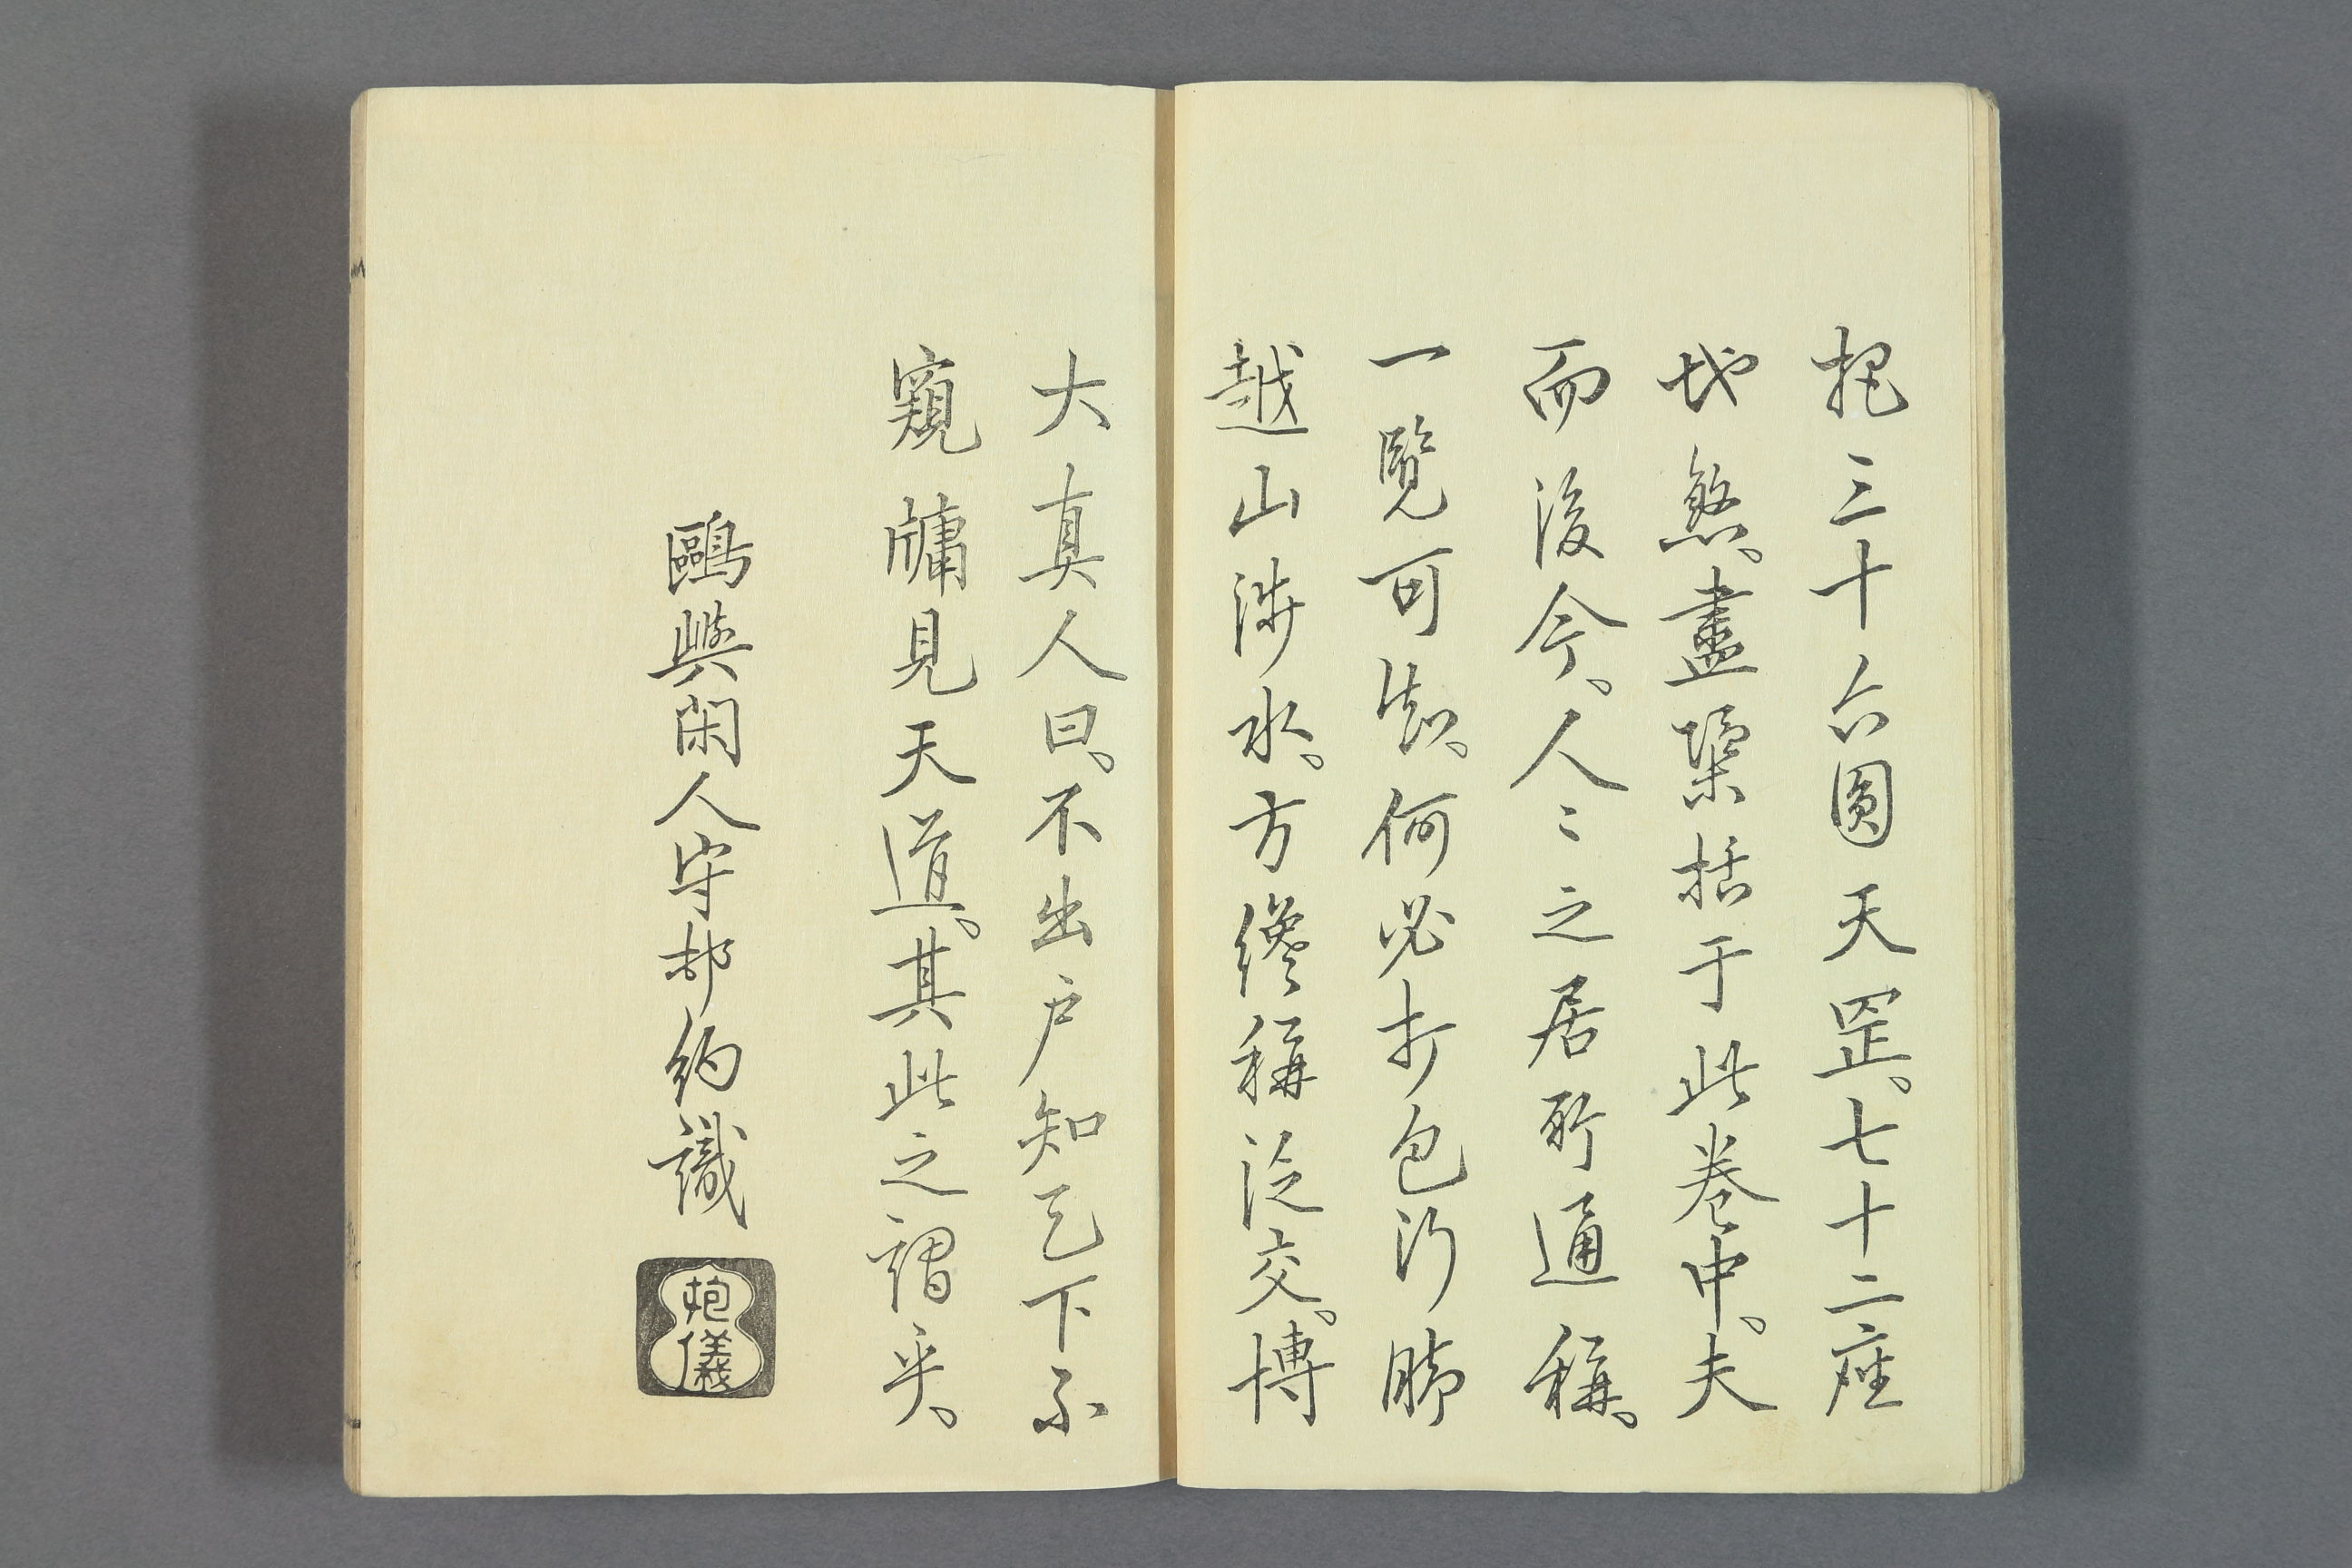 把三十六圓天罡、七十二座
地煞、盡檃括于此卷中。夫
而後今、人〻之居所通稱、
一覽可知。何必打包行脚
越山涉水。方纔稱泛交。博
大真人曰。不出戶知天下不
窺牖見天道。其此之謂乎。
鷗嶼閑人守邨約識
抱儀